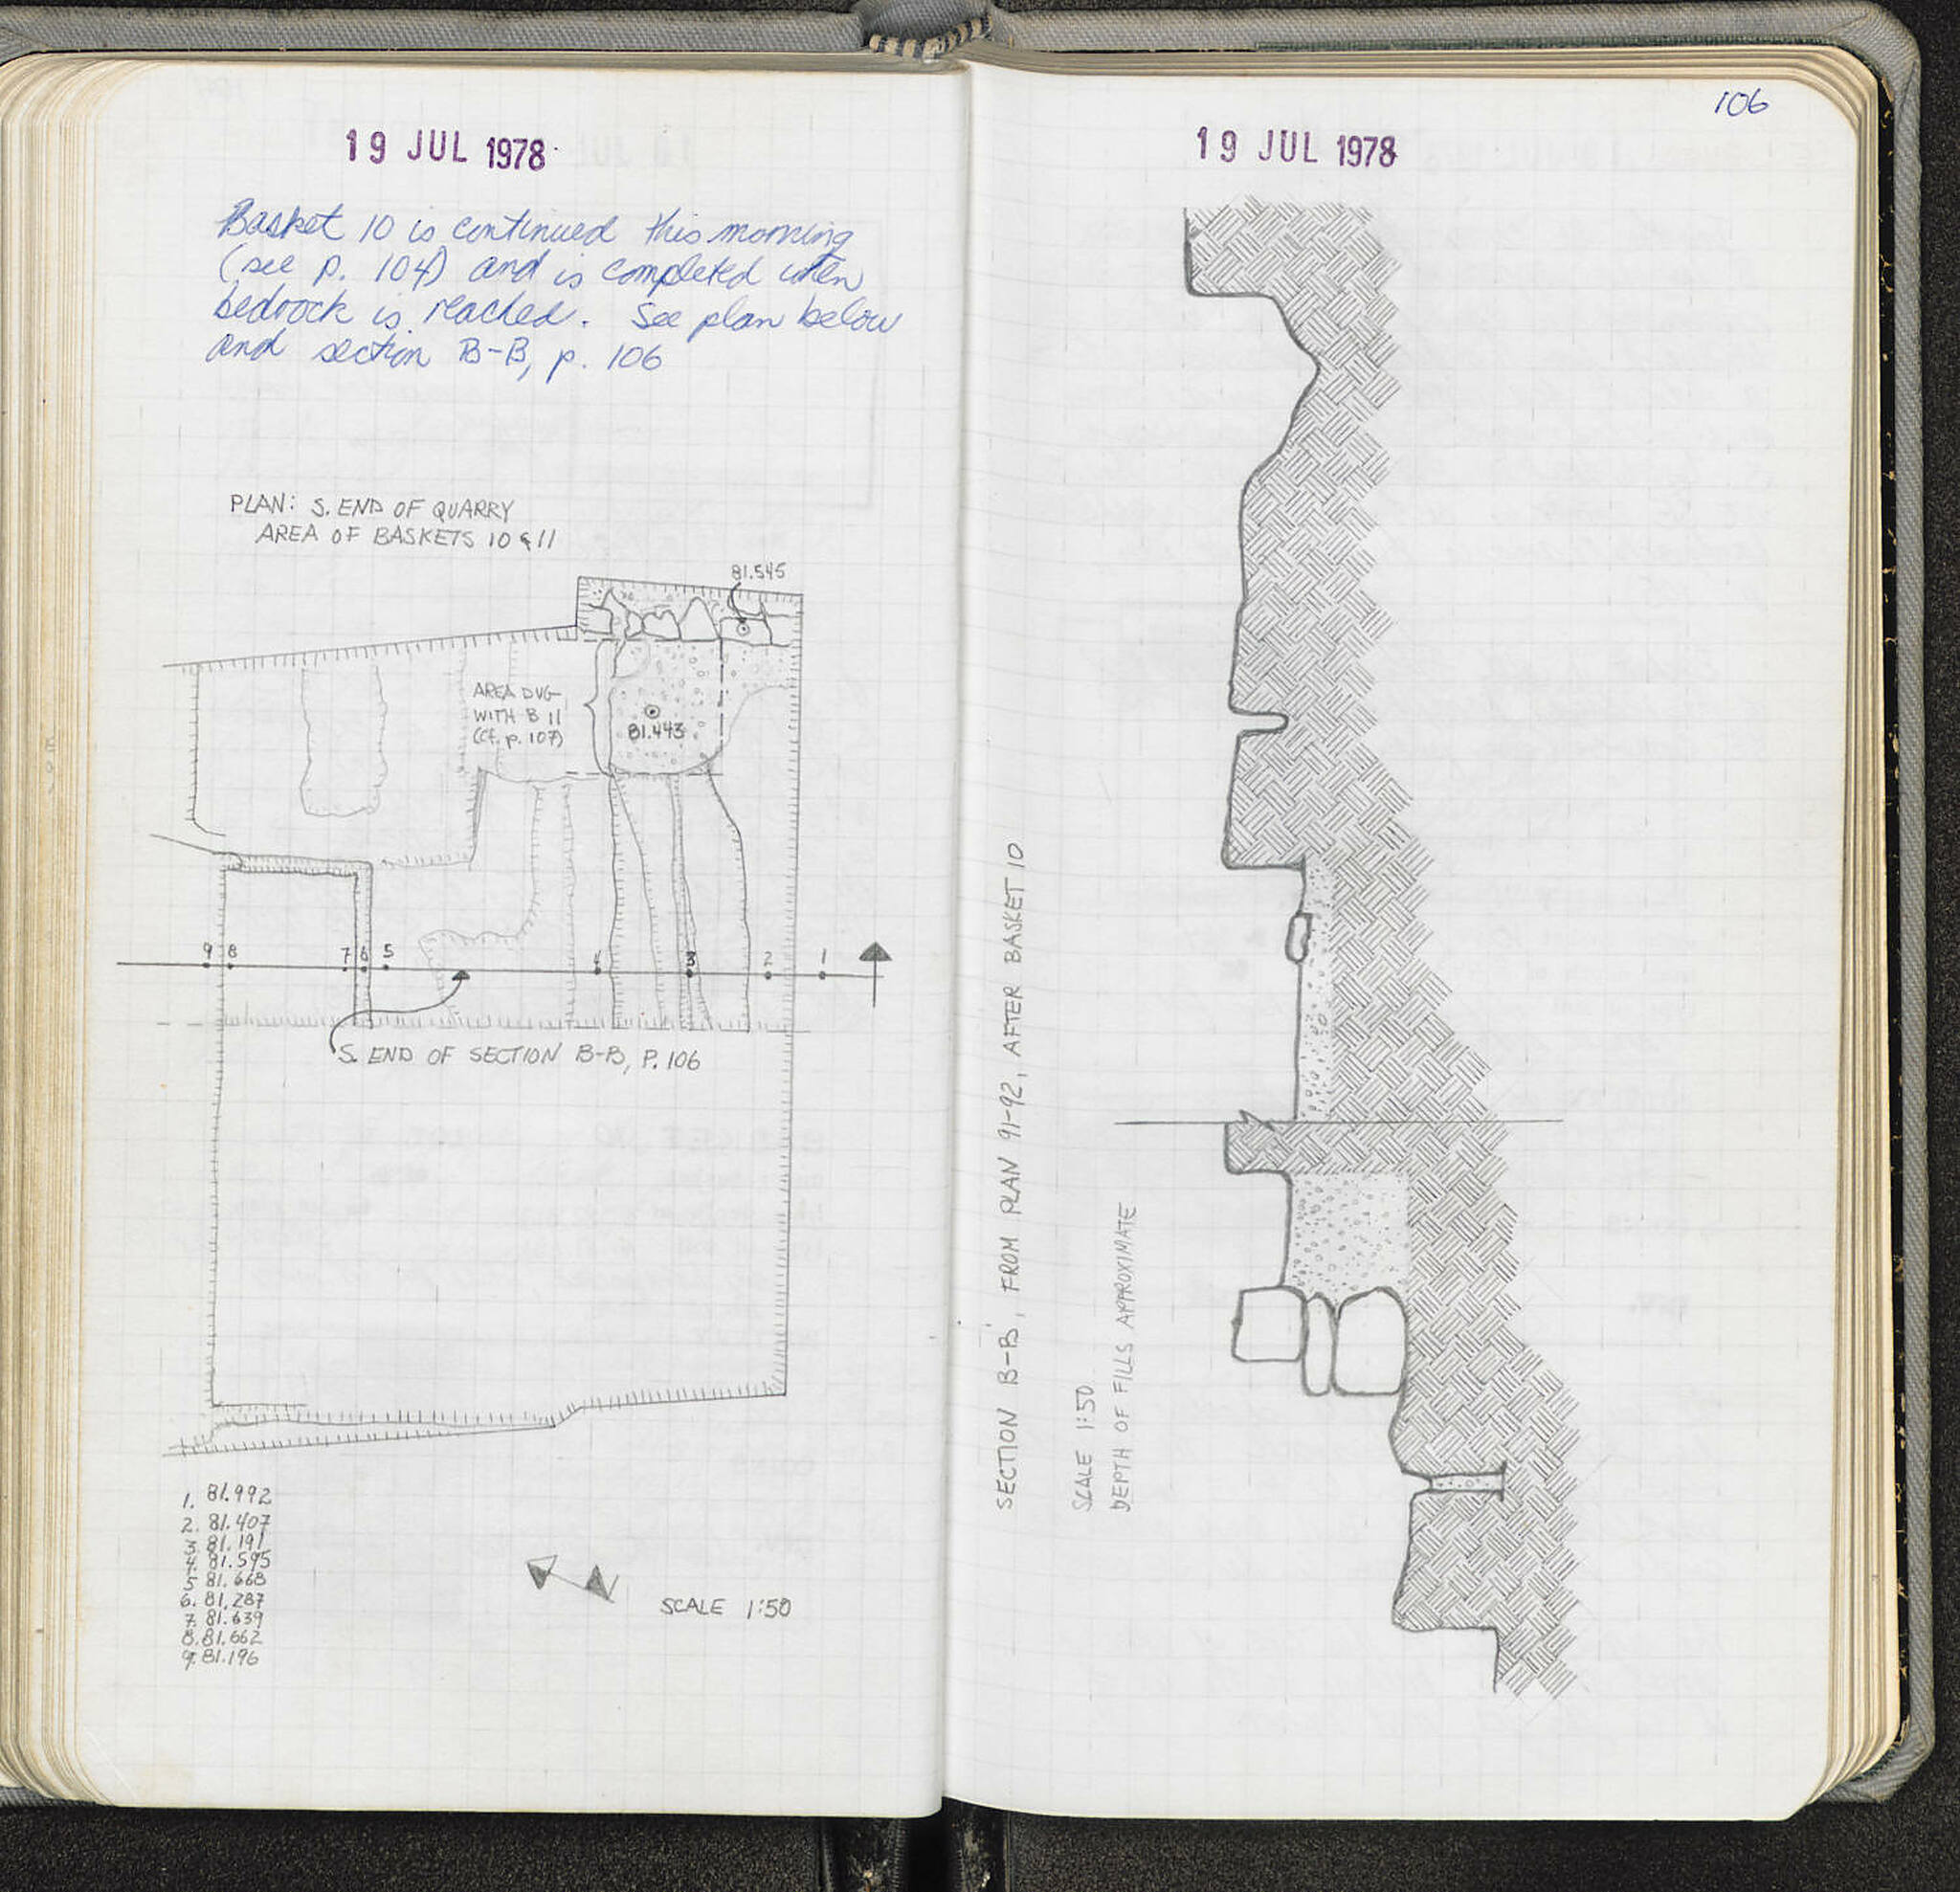 19 JUL 1978
Basket 10 is continued this morning
(see p. 104) and is completed when
bedrock is reached. See plan below
and section B-B, p. 106
PLAN: S. END OF QUARRY
AREA OF BASKETS 10 & 11
81.545
AREA DUG
WITH B 11
(cf. p. 107)
81.443
9 8 7 6 5 4 3 2 1
S. END OF SECTION B-B, P. 106
1. 81.992
2. 81.407
3. 81.191
4. 81.595
5 81.668
6. 81.287
7. 81.639
8. 81.662
9. 81.196
SCALE 1:50
106
19 JUL 1978
SECTION B-B, FROM PLAN 91-92, AFTER BASKET 10
SCALE 1:50
DEPTH OF FILLS APPROXIMATE